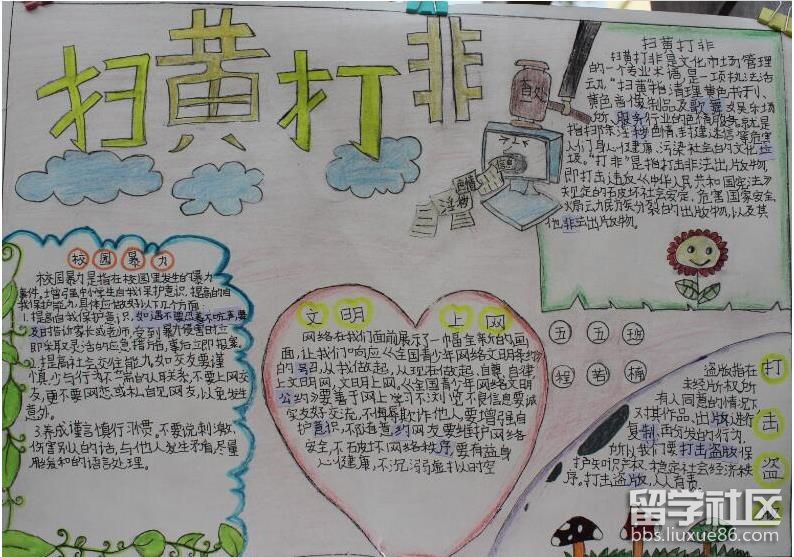 扫黄打非
扫黄打非
扫黄打非是文化市场管理
的一个专业术语,是一项执法活
动。"扫黄"指清理黄色书刊、
黄色音像制品及歌舞娱乐场
所、服务行业的色情服务,就是
人们身心健康、污染社会的文化垃
圾。"打非"是指打击非法出版物,
即打击违反《中华人民共和国宪法》
规定的破坏社会安定,危害国家安全
煽动民族分裂的出版物,以及其
他非法出版物。
色情
校园暴力
校园暴力是指在校园里发生的暴力
1.提高自我保护意识。如遇不要忍着不吭声,要
及时告诉家长或老师,受到暴力侵害时,立
即采取灵活的应急措施,事后立即报案。
2.提高社会交往能力。如交友要谨
慎,少与行为不端的人联系,不要上网交
友,更不要网恋或私自见网友,以免发生
意外。
3.养成谨言慎行习惯。不要说刺激,
伤害别人的话,与他人发生矛盾尽量
用缓和的语言处理。
文明上网
网络在我们面前展示了一幅全新的画
面,让我们响应《全国青少年网络文明公约》
的号召,从我做起,从现在做起,自尊,自律,
上文明网,文明上网。《全国青少年网络文明
公约》要善于网上学习不浏览不良信息要诚
实友好交流,不侮辱欺诈他人要增强自
护意识,不随意约网友要维护网络
安全,不破坏网络秩序,要有益身
心健康,不沉溺虚拟时空
五五班
程若楠
打击盗版
盗版指在
未经版权所
有人同意的情况下,
对其作品、出版进行
复制、再分发的行为,
所以我们要打击盗版保
护知识产权,稳定社会经济秩
序。打击盗版,人人有责。
留学社区
bbs.liuxue86.com